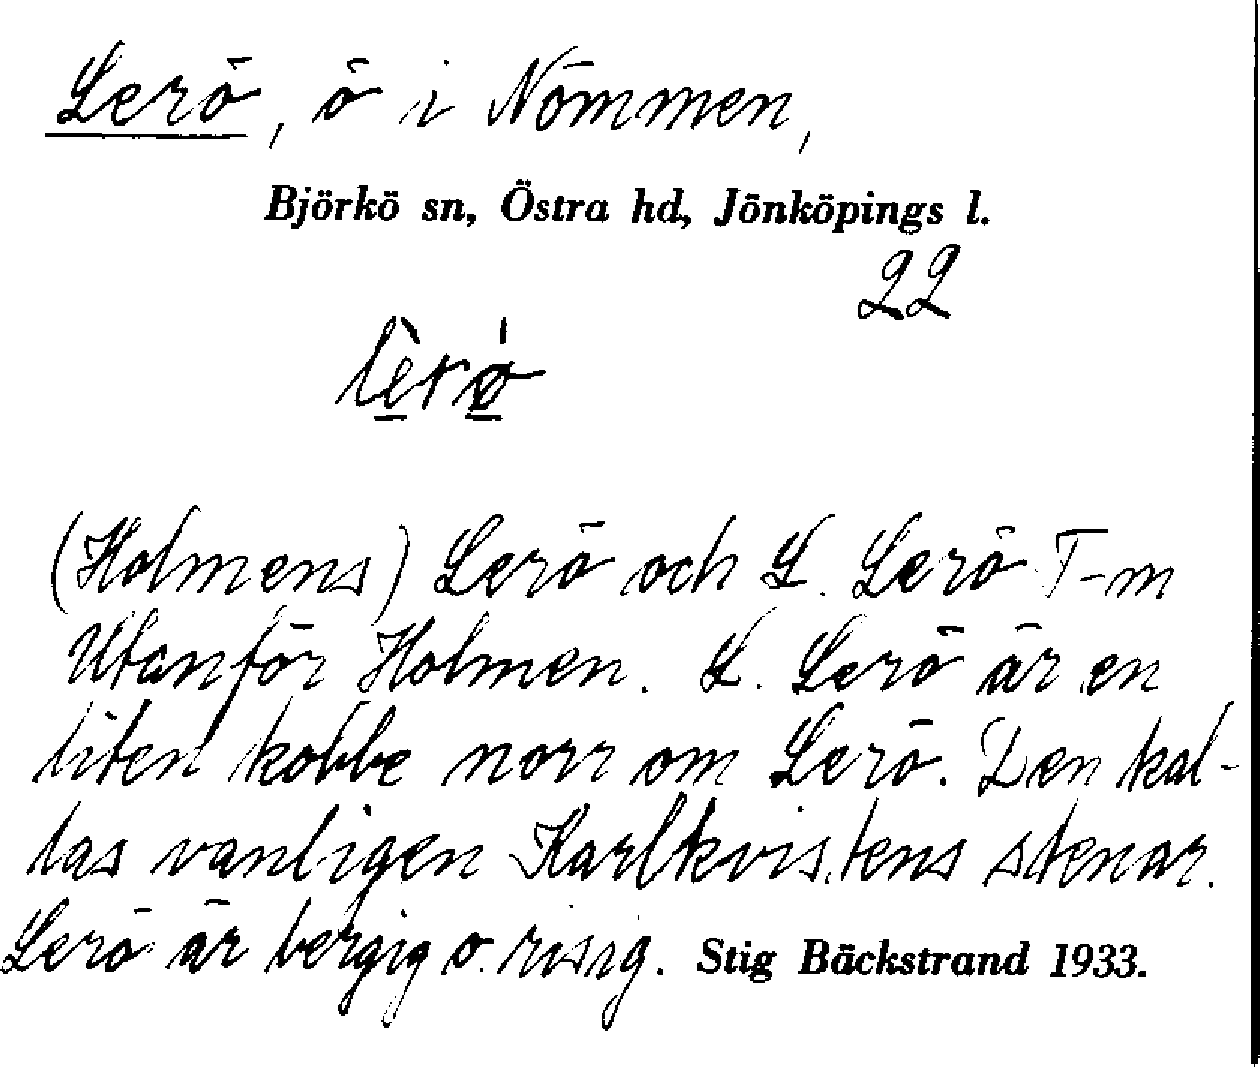 Lerö, ö i Nömmen,
Björkö sn, Östra hd, Jönköpings l.
22
lèrø̀
(Holmens) Lerö och L. Lerö T-m
Utanför Holmen. L. Lerö är en
liten kobbe norr om Lerö. Den kal-
las vanligen Karlkvistens stenar.
Lerö är bergig o. risig. Stig Bäckstrand 1933.